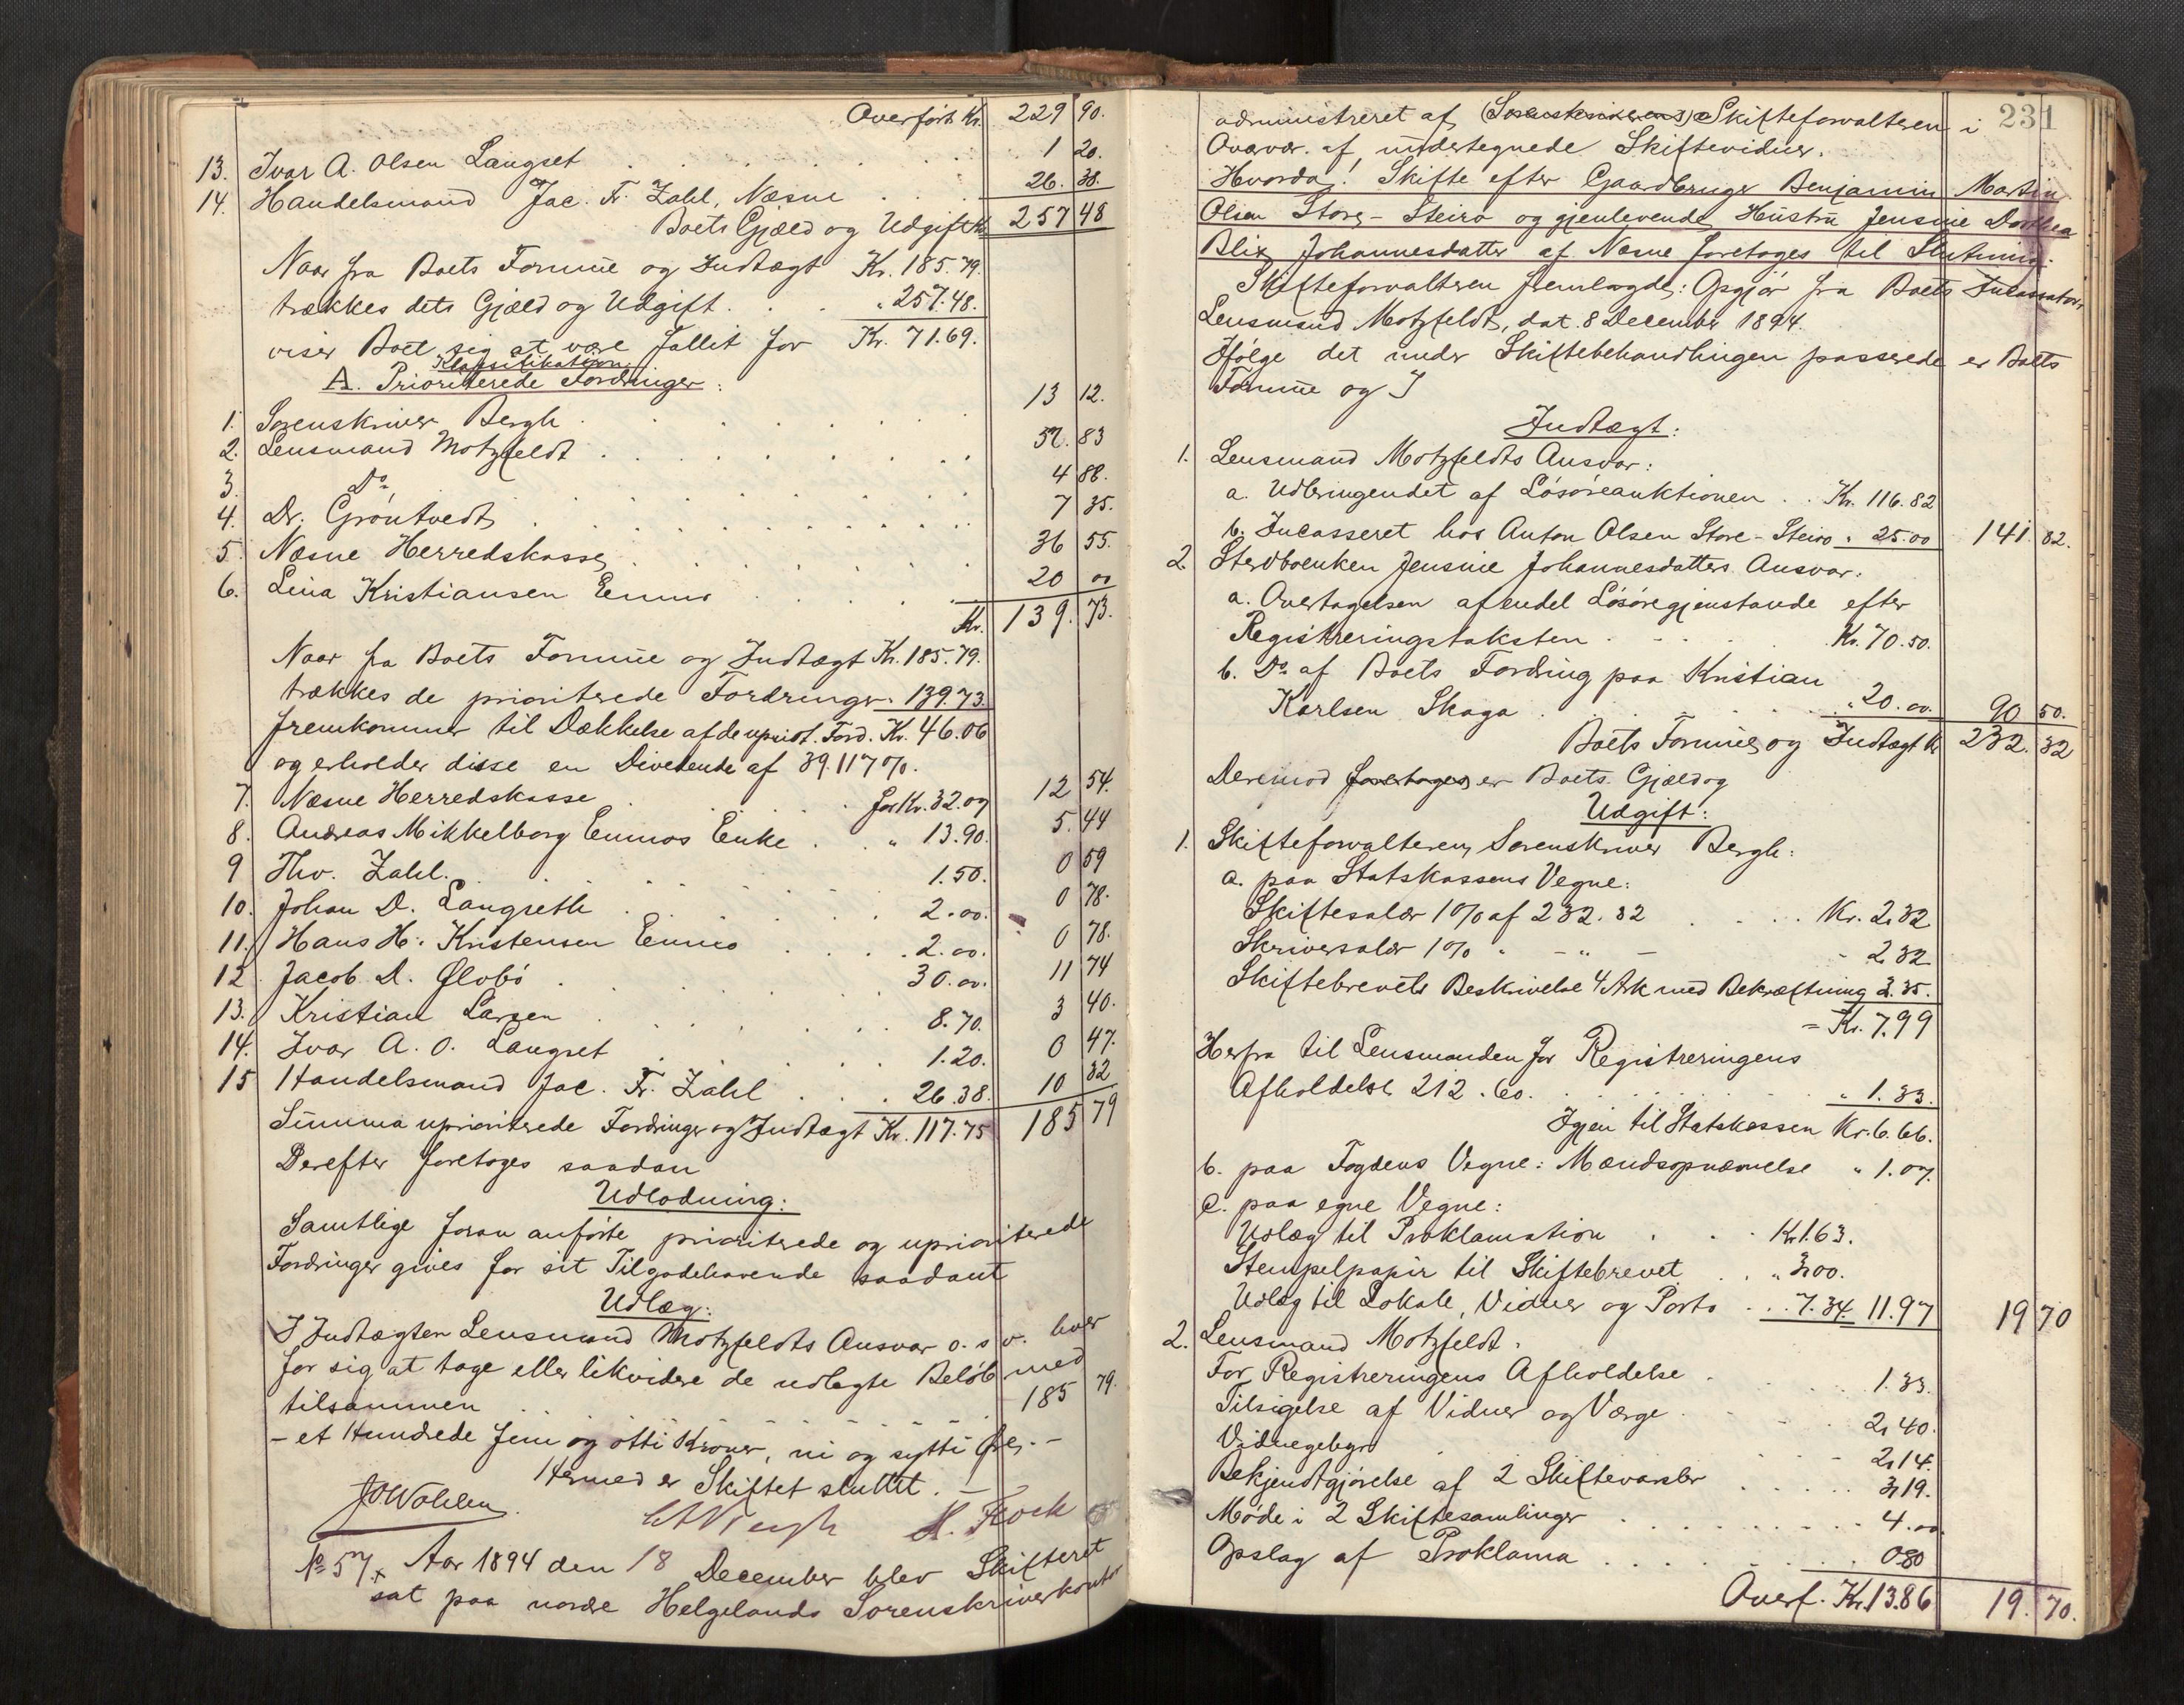 Overført Kr. 229 90.
13. Ivar A. Olsen Langset 1 20.
14. Handelsmand Jac. Fr. Zahl, Næsne 26. 38.
Boets Gjæld og Udgift Kr. 257 48
Naar fra Boets Formue og Indtægt Kr. 185.79.
trækkes dets Gjæld og Udgift " 257.48.
viser Boet sig at være fallit for Kr. 71.69.
Klassifikation
A. Prioriterede Fordringer:
1. Sorenskriver Bergh 13 12.
2. Lensmand Motzfeldt 57. 83
3. Do 4 88.
4. Dr. Gröntvedt 7 35.
5. Næsne Herredskasse 36 55.
6. Lina Kristiansen Enmo 20 00
Kr. 139. 73.
Naar fra Boets Formue og Indtægt Kr. 185.79.
trækkes de prioriterede Fordringer " 139.73.
fremkommer til Dækkelse af de upriot. Ford. Kr. 46.06
og erholder disse en Dividende af 39.117 %.
7. Næsne Herredskasse for Kr. 32.07 12 54.
8. Andreas Mikkelborg Enmos Enke " 13.90. 5. 44
9 Thv. Zahl. 1.50. 0 59
10. Johan D. Langseth 2.00. 0 78.
11. Hans H. Kristensen Enmo 2.00. 0 78.
12. Jacob D. Ølobö 30.00. 11 74
13. Kristian Larsen 8.70. 3 40.
14. Ivar A. O. Langset 1.20. 0 47.
15 Handelsmand Jac. Fr. Zahl 26.38. 10 32
Summa uprioriterede Fordringer og Indtægt Kr. 117.75 185 79
Derefter foretoges saadan
Udlodning:
Samtlige foran anförte prioriterede og uprioriterede
Fordringer gives for sit Tilgodehavende saadant
Udlæg:
I Indtægten Lensmand Motzfeldts Ansvar o. s. v. hver
for sig at tage eller likvidere de udlagte Belöb med
tilsammen 185 79.
– et Hundrede fem og otti Kroner, ni og sytti Øre. –
Hermed er Skiftet sluttet. –
H. Flock
No 57. Aar 1894 den 18 December blev Skifteret
sat paa nordre Helgelands Sorenskriverkontor
231
administreret af (Sorenskriverens) Skifteforvalteren i
Overvær. af undertegnede Skiftevidner.
Hvorda: Skifte efter Gaardbruger Benjamin Martin
Olsen Store-Steiro og gjenlevende Hustru Jensine Dorthea
Blix Johannesdatter af Næsne foretoges til Slutning.
Skifteforvalteren fremlagde: Opgjør fra Boets Incassator
Lensmand Motzfeldt, dat. 8 December 1894.
Ifölge det under Skiftebehandlingen passerede er Boets
Formue og I
Indtægt:
1. Lensmand Motzfeldts Ansvar:
a. Udbringendet af Lösöreauktionen Kr. 116.82
b. Incasseret hos Anton Olsen Store-Steiro " 25.00 141. 82.
2. Sterdboenken Jensine Johannesdatters Ansvar:
a. Overtagelsen af endel Lösöregjenstande efter
Registreringstaksten Kr. 70.50.
b. Do af Boets Fordring paa Kristian
Karlsen Skaga " 20.00. 90 50.
Boets Formue og Indtægt Kr 232. 32
Derimod foretoges er Boets Gjæld og
Udgift:
1. Skifteforvalteren, Sorenskriver Bergh:
a. paa Statskassens Vegne:
Skiftesalær 1% af 232.32 Kr. 2.32
Skriversalær 1% " – " – - 2.32
Skiftebrevets Beskrivelse 4 Ark med Bekræftning 3.35.
= Kr. 7.99
Herfra til Lensmanden for Registreringens
Afholdelse 212.60. " 1.33.
Igjen til Statskassen Kr. 6.66.
b. paa Fogdens Vegne: Mændsopnævnelse " 1.07.
c. paa egne Vegne:
Udlæg til Proklamation Kr 1.63.
Stempelpapir til Skiftebrevet " 3.00.
Udlæg til Lokale, Vidner og Porto 7.34. 11.97 19 70
2. Lensmand Motzfeldt.
For Registreringens Afholdelse 1.33.
Tilsigelse af Vidner og Værge 2.40.
Vidnegebyr 2.14.
Bekjendtgjörelse af 2 Skiftevarsler 3.19.
Möde i 2 Skiftesamlinger 4.00.
Opslag af Proklama 0.80
Overf. Kr. 13.86 19. 70.